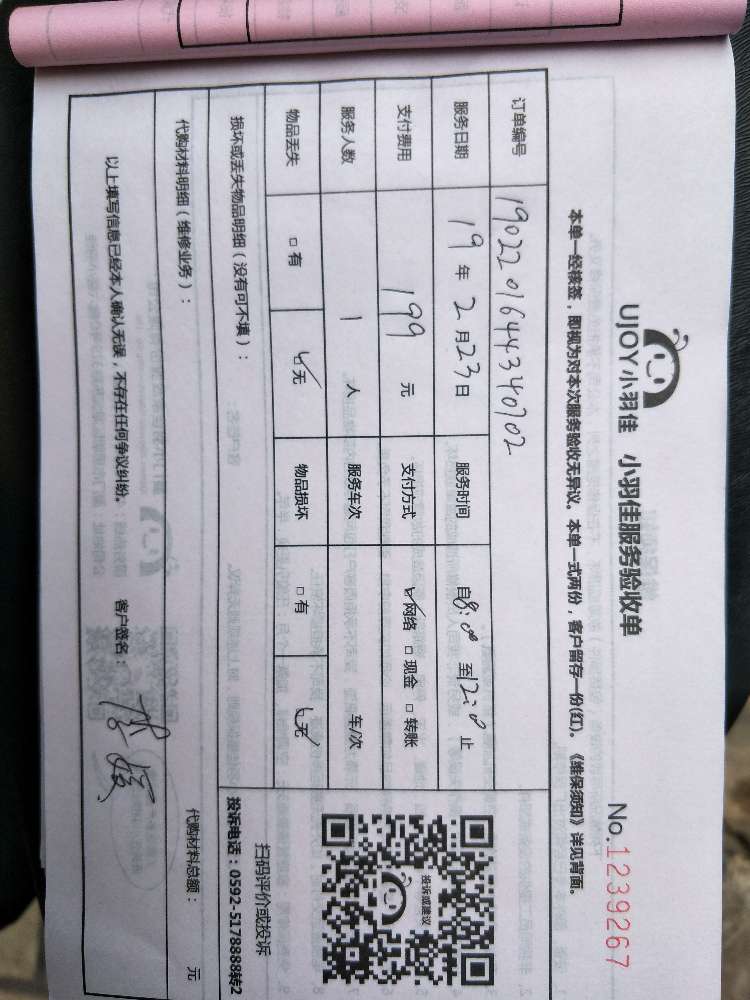 UJOY小羽佳 小羽佳服务验收单
No.1239267
本单一经核签，即视为对本次服务验收无异议。本单一式两份，客户留存一份(红)。《维保须知》详见背面。
订单编号 190220164434070​2
服务日期 19年2月23日 服务时间 自8:00至12:00止
支付费用 199元 支付方式 ☑网络 □现金 □转账
服务人数 1人 服务车次 车/次
物品丢失 □有 ☑无 物品损坏 □有 ☑无
投诉或建议
扫码评价或投诉
损坏或丢失物品明细（没有可不填）：
投诉电话：0592-5178888转2
代购材料明细（维修业务）： 代购材料总额： 元
以上填写信息已经本人确认无误，不存在任何争议纠纷。 客户签名：